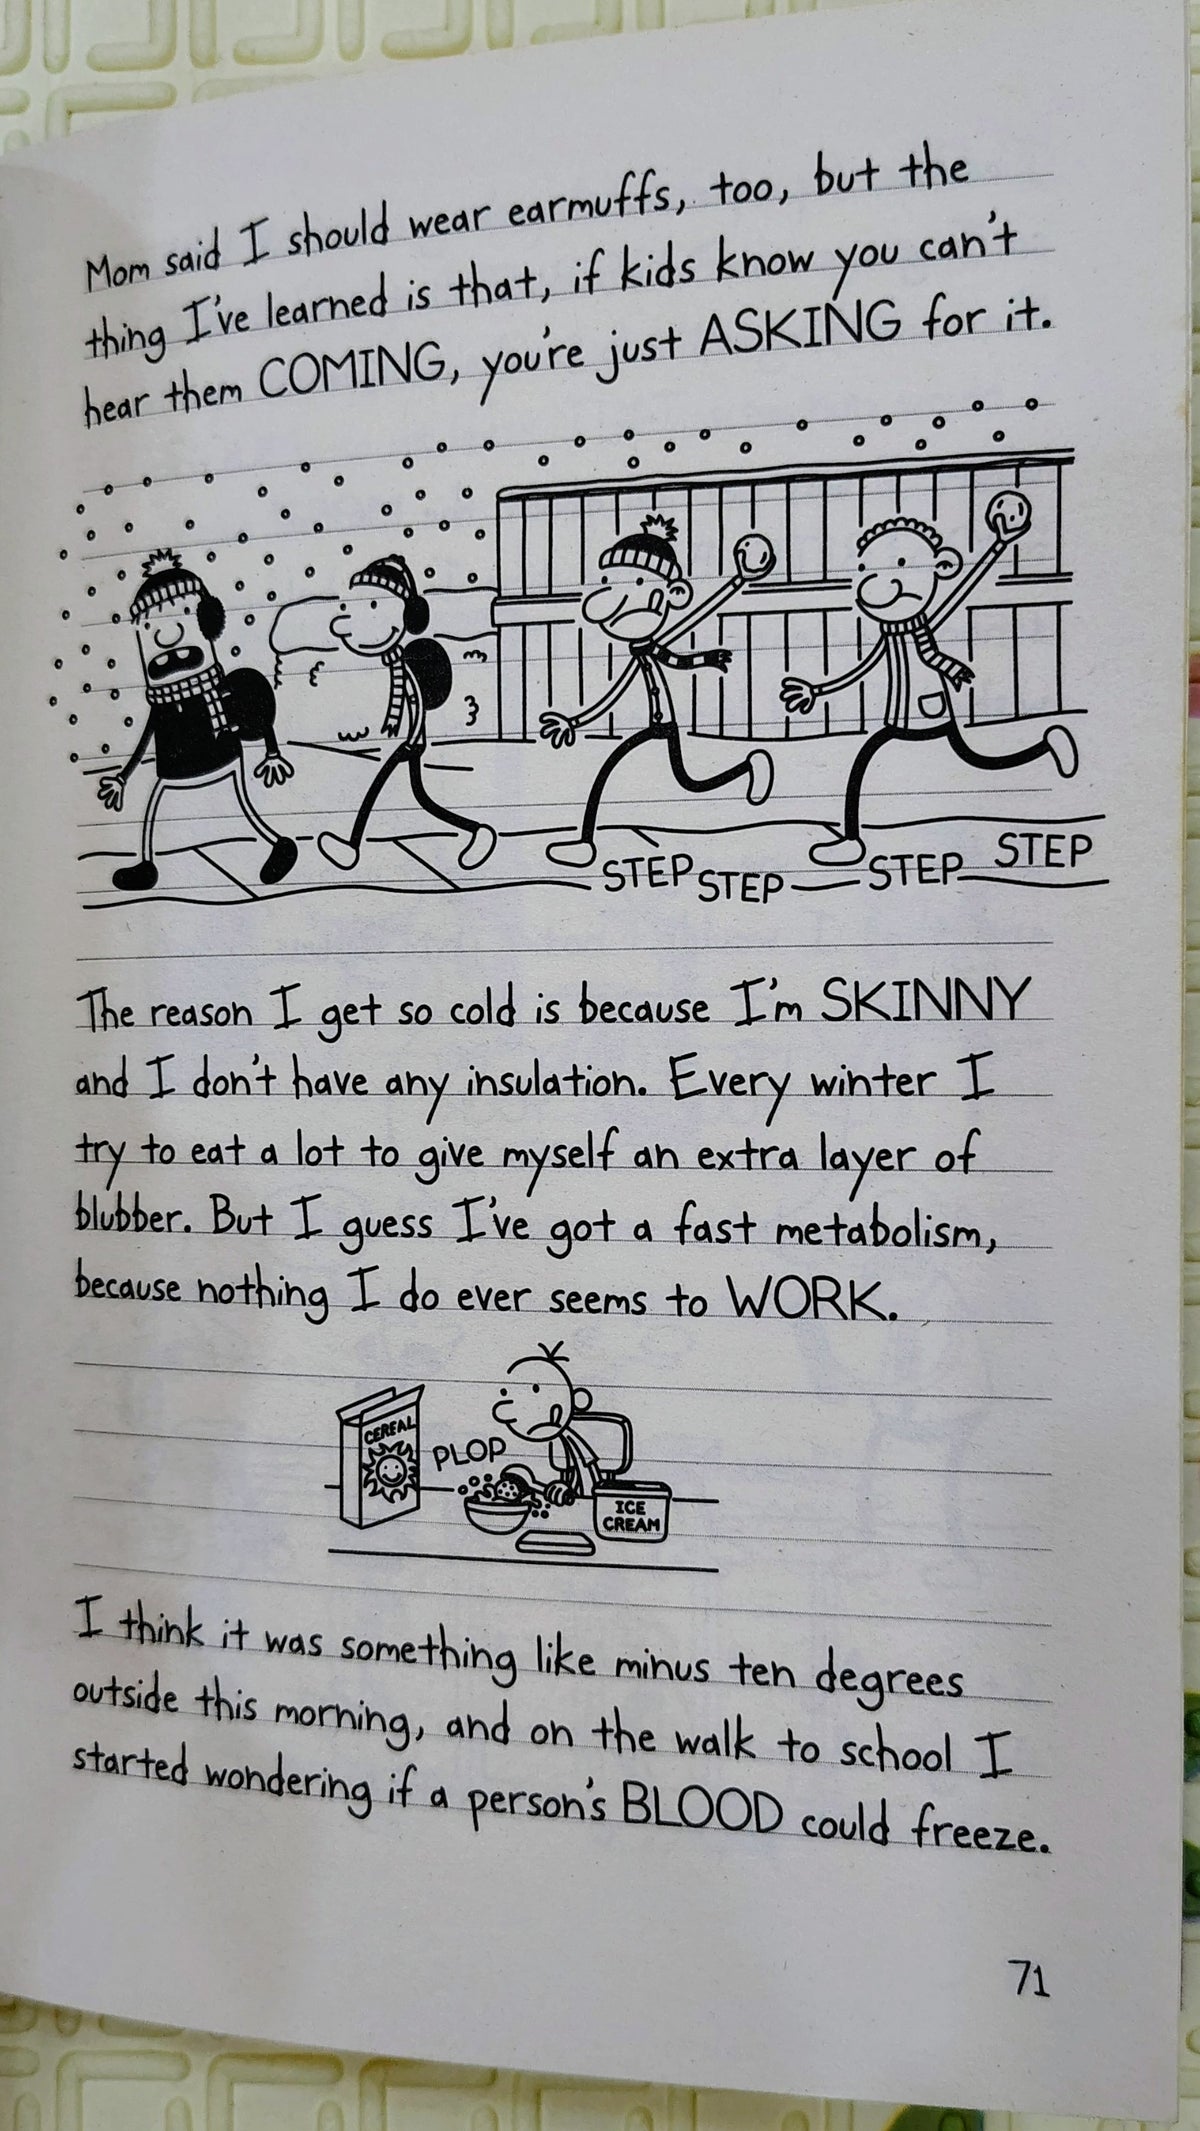 Mom said I should wear earmuffs, too, but the
thing I've learned is that, if kids know you can't
hear them COMING, you're just ASKING for it.
STEP STEP STEP STEP
The reason I get so cold is because I'm SKINNY
and I don't have any insulation. Every winter I
try to eat a lot to give myself an extra layer of
blubber. But I guess I've got a fast metabolism,
because nothing I do ever seems to WORK.
CEREAL
PLOP
ICE
CREAM
I think it was something like minus ten degrees
outside this morning, and on the walk to school I
started wondering if a person's BLOOD could freeze.
71